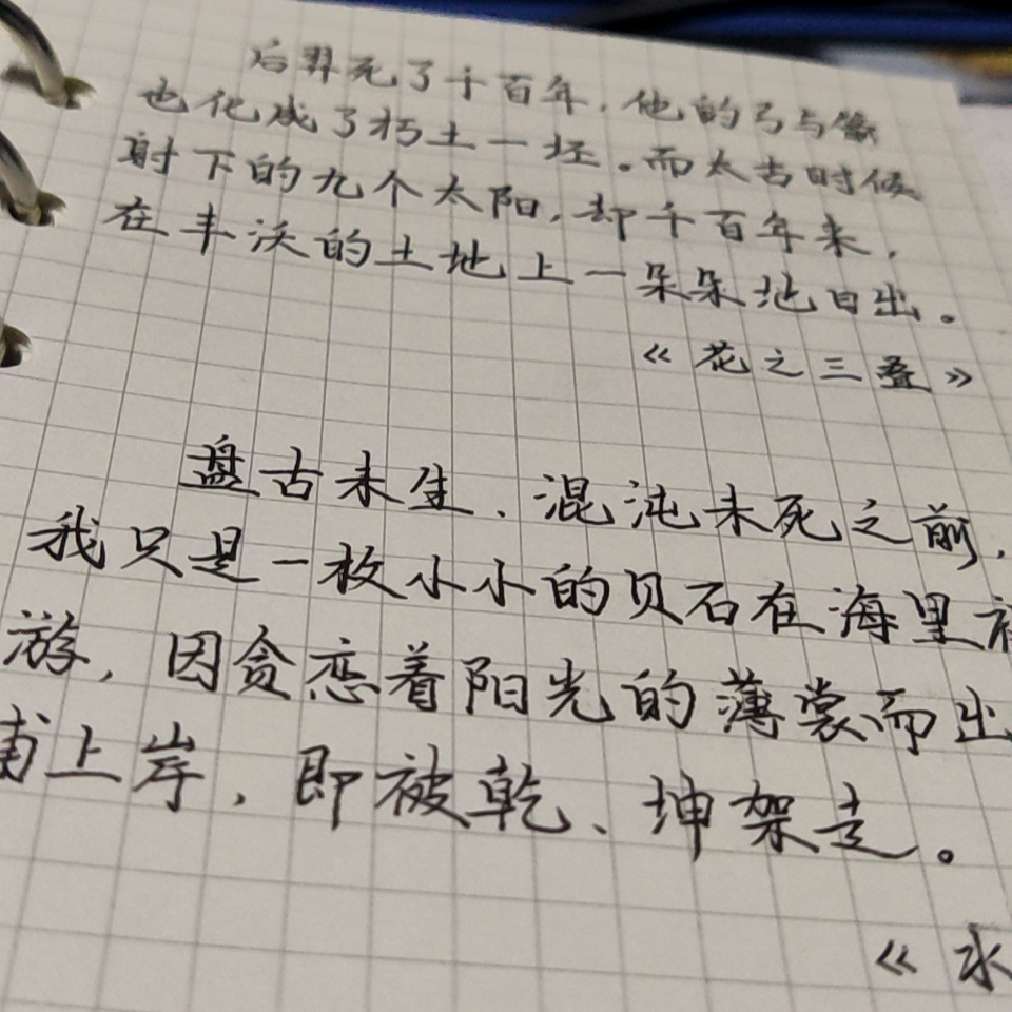 后羿死了千百年，他的弓与像
也化成了朽土一坯。而太古时候
射下的九个太阳，却千百年来，
在丰沃的土地上一朵朵地日出。
《花之三叠》
盘古未生、混沌未死之前，
我只是一枚小小的贝石在海里
游，因贪恋着阳光的薄裳而出
上岸，即被乾、坤架走。
《水